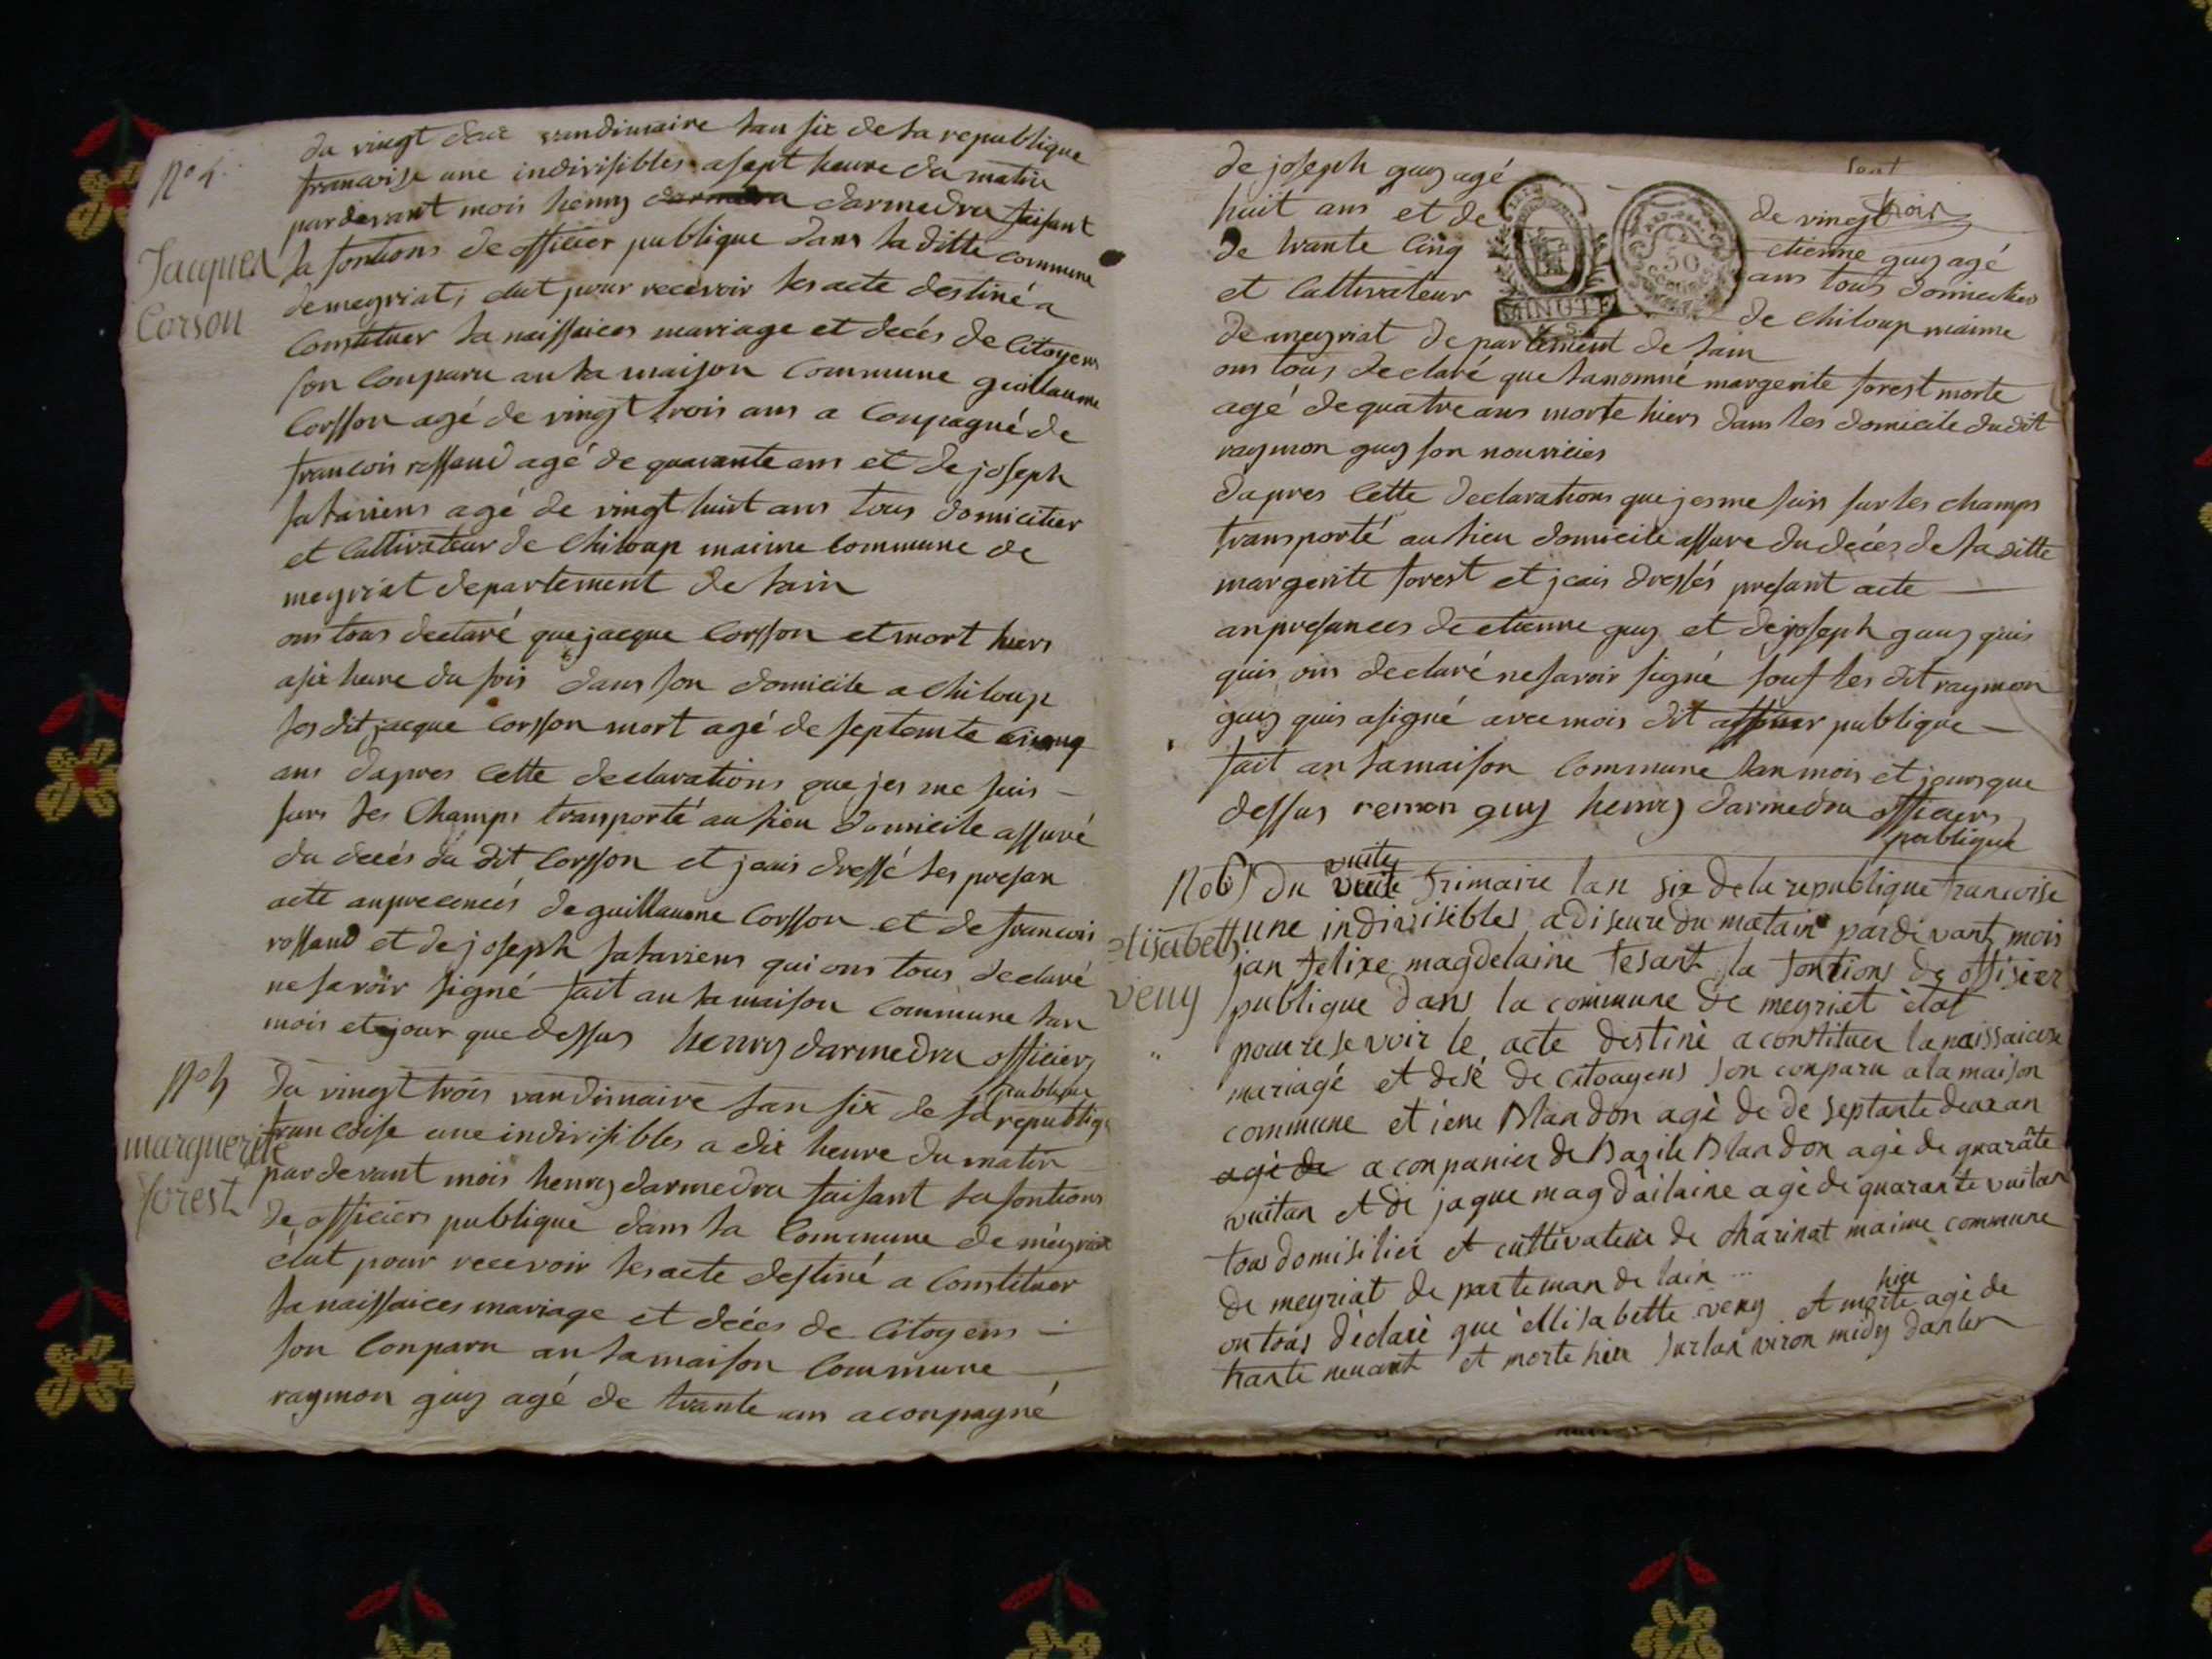 N° 4
du vingt deux vandimaire lan six de la republique
francoise une indivisibles a sept heure du matin
pardevant mois henry darmedra faisant
Jacques
la fontions de officier publique dans la ditte commune
Corson
de meyriat, elut pour recevoir les acte destiné a
Constituer la naissaices mariage et decés de Citoyens
son Conparu an la maison Commune guillaume
Corsson agé de vingt trois ans a Conpagné de
francois rossand agé de quarante ans et de joseph
agé de vingt huit ans tous domicilier
et Cultivateur de Chiloup maime Commune de
meyriat departement de lain
ons tous declaré que jacque Corsson et mort hiers
a six heure du sois dans son domicile a Chiloup
les dit jacque Corsson mort agé de septente
ans dapres Cette declarations que jes me suis
surs les Champs tranporté au lieu domicile assuré
du decés du dit Corsson et jeais dressé les presan
acte anprecences de guillaume Corsson et de francois
rossand et de joseph qui ons tous declaré
ne savoir signé fait an la maison Commune lan
mois et jour que dessus henry darmedra officiers
publique
N° 5
du vingt trois vandimaire lan six de la republiq
francoise une indivisibles a dix heure du matin
marguerite
pardevant mois henry darmedra faisant la fontions
forest
de officiers publique dans la Commune de méyriat
élut pour recevoir les acte destiné a Constituer
la naissaices mariage et decés de Citoyens
son Conparu an la maison Commune
raymon guy agé de trante ans aconpagné
de joseph guy agé de vingt trois
huit ans et de etienne guy agé
de trante Cinq ans tous domicilies
et Cultivateur de Chiloup maime
MINUTE
50
de meyriat departement de lain
ons tous declaré que la nomné margerite forest morte
agé de quatre ans morte hiers dans les domicile du dit
raymon guy son nouricies
dapres Cette declarations que jes me suis sur les champs
transporté au lieu domicile assure du decés de la ditte
margerite forest et jeais dressés presant acte
anpresances de etienne guy et de joseph guy quis
quis ons declaré ne savoir signé souf les dit raymon
guy quis a signé avec mois dit publique
fait an la maison Commune lan mois et jours que
dessus remon guy henry darmedra officiers
publique
No 6 Du vuite frimaire lan six de la republique francoise
elisabeth
une indivisibles a diseure du matain pardivant mois
jan felixe magdelaine fesant la fontions de offisier
veny
publique dans la commune de meyriat état
pour resevoir le acte destiné a constituer la naissaicese
mariagé et desé de citoayens son conparu a la maison
commune etiene Blandon agé de de septante deuxan
agé de a conpanier de Bazile Blandon agé de quaráte
vuitan et de jaque magdailaine agé de quarante vuitan
tous domisilier et cultivateur de charinat maime commune
de meyriat de parteman de lain
on tous déclaré que ellisabette veny et morte hier agé de
trante neuant et morte hier surlan viron midy danler